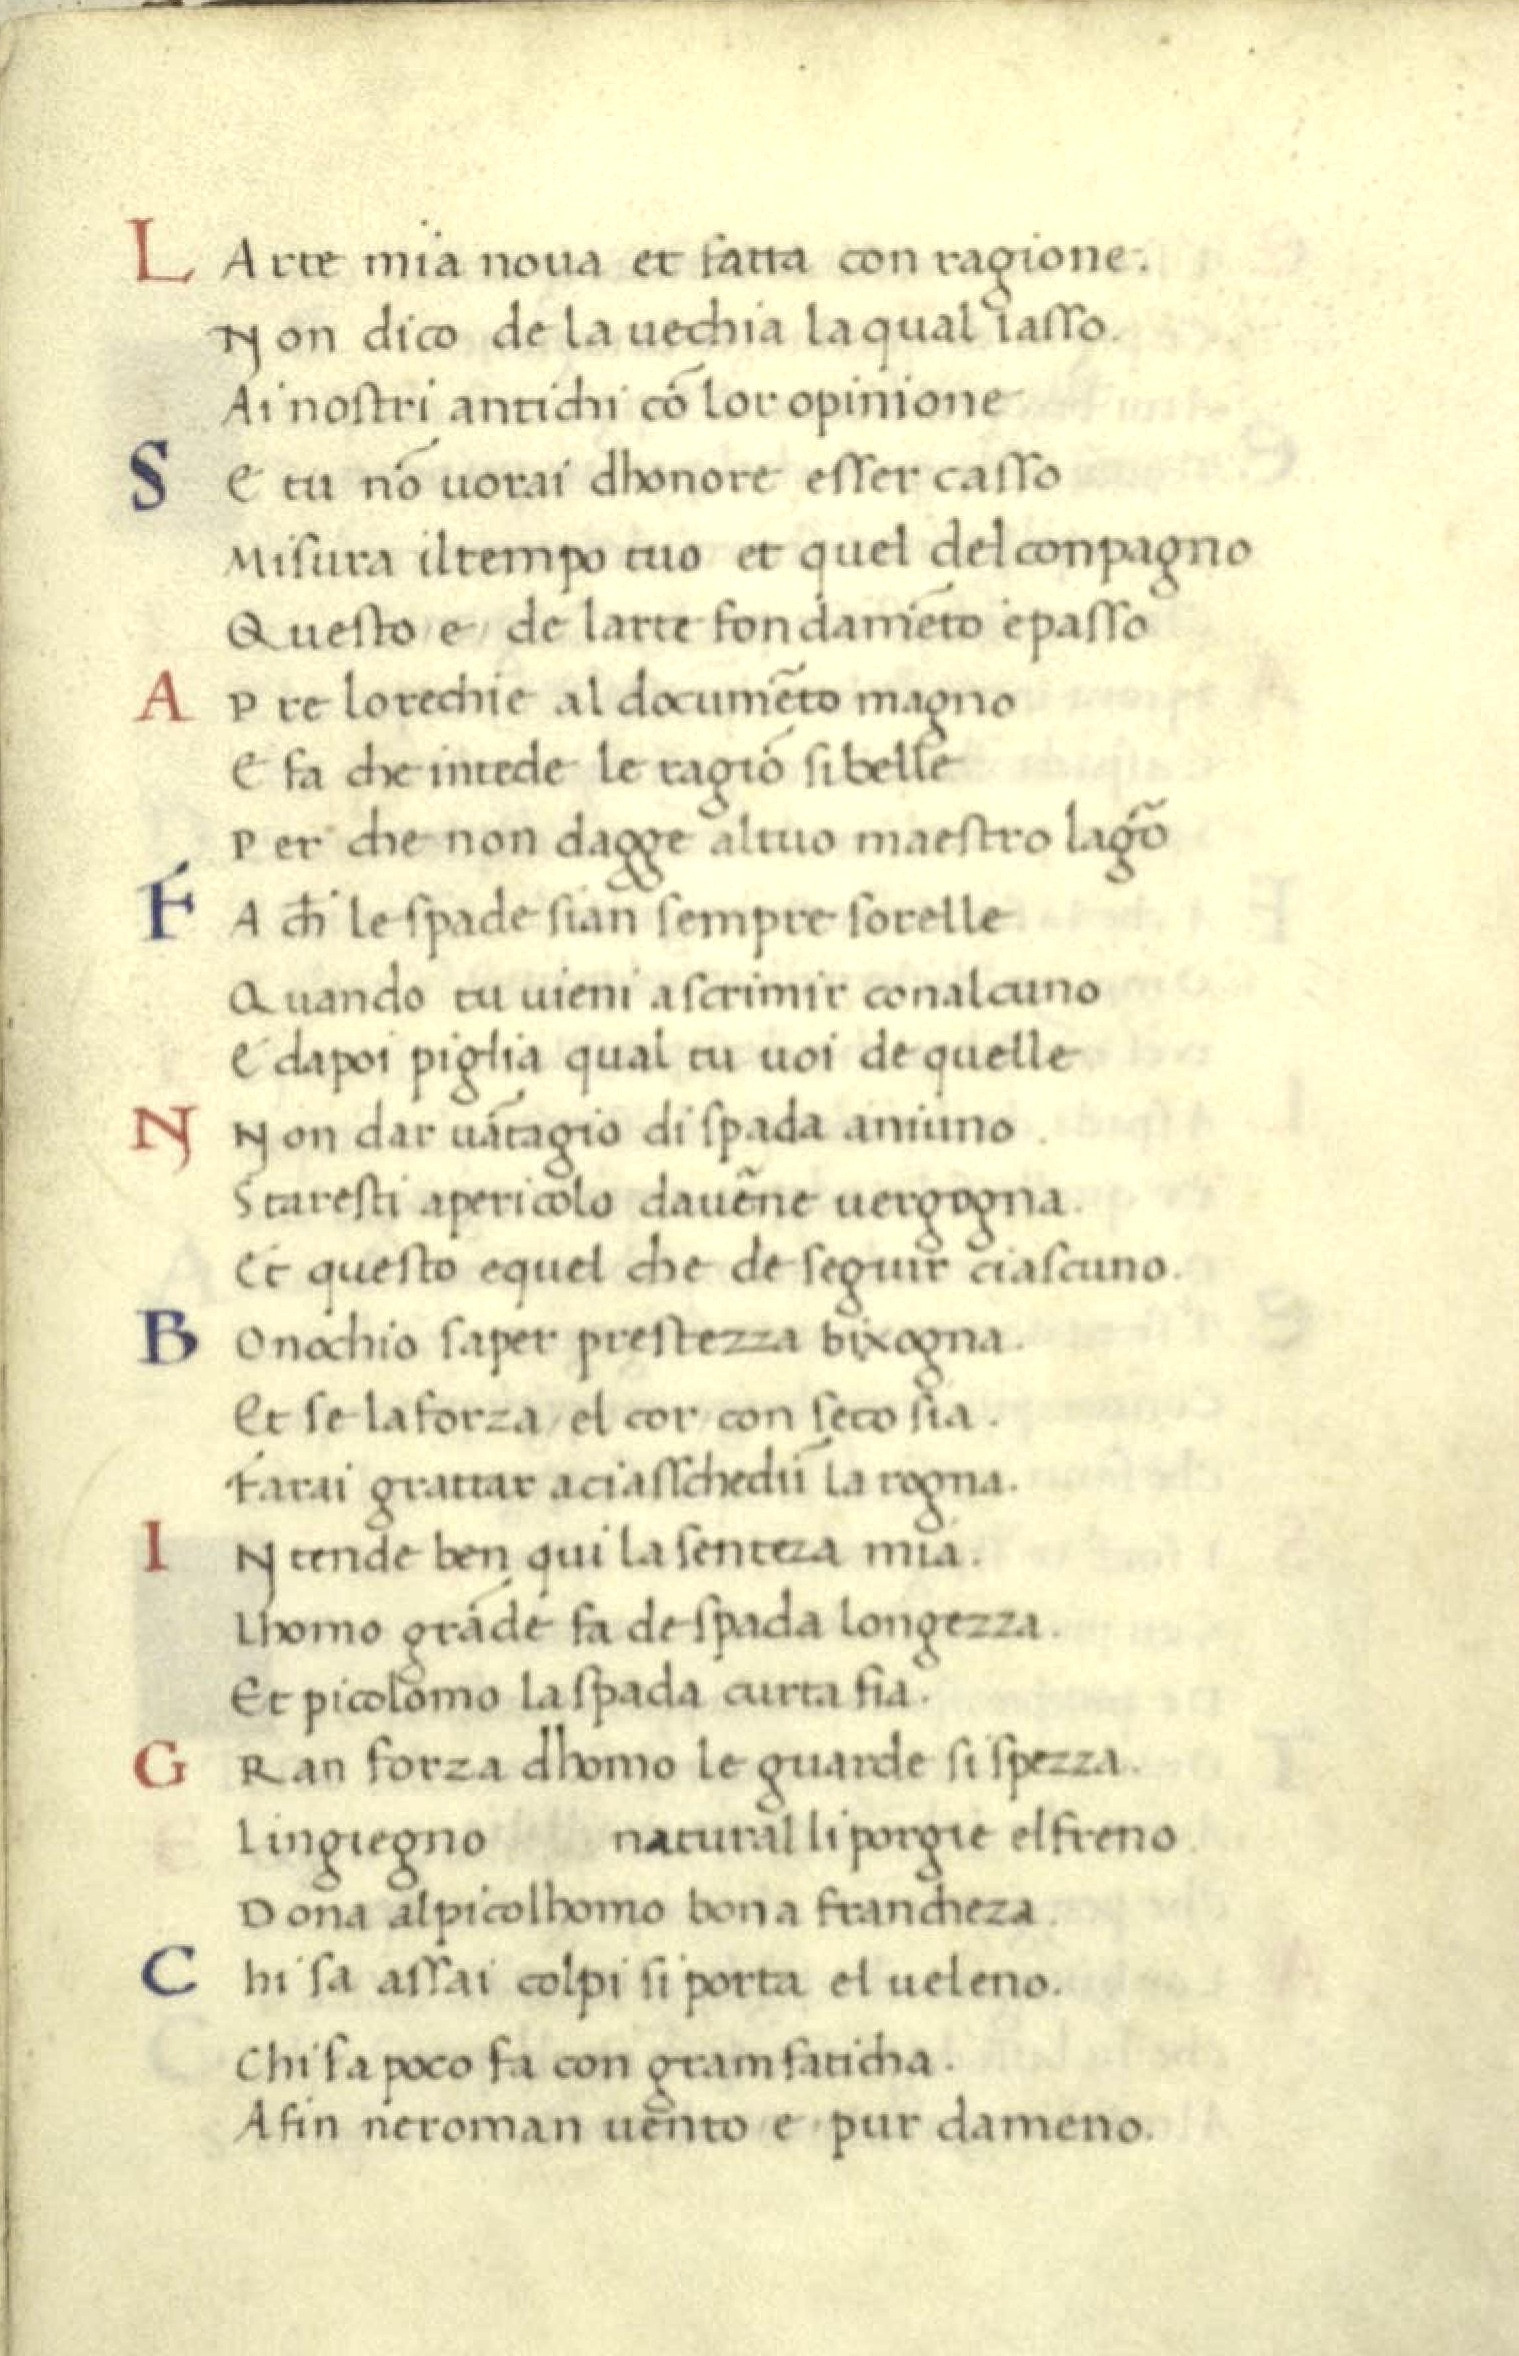 LArte mia noua et fatta con ragione.
Non dico de la uechia la qual lasso.
Ai nostri antichi cō lor opinione
SE tu nō uorai dhonore esser casso
Misura il tempo tuo et quel del conpagno
Questo e de larte fondamēto e passo
APre lorechie al documēto magno
E fa che intede le ragiō si belle
Per che non dagge al tuo maestro lagō
FA ch̄i le spade sian sempre sorelle
Quando tu uieni a scrimir con alcuno
E dapoi piglia qual tu uoi de quelle
NNon dar uātagio di spada a niuno.
Staresti a pericolo dauēne uergogna.
Et questo e quel che de seguir ciascuno.
BOnochio saper prestezza bixogna.
Et se la forza el cor con seco sia.
Farai grattar a ciasschedū la rogna.
INtende ben qui la senteza mia.
Lhomo grāde fa de spada longezza.
Et picolomo la spada curta fia.
GRan forza dhomo le guarde si spezza.
Lingiegno natural li porgie el freno
Dona al picolhomo bona francheza.
Chi sa assai colpi si porta el ueleno.
Chi sa poco fa con gram faticha.
Afin neroman uento e pur dameno.